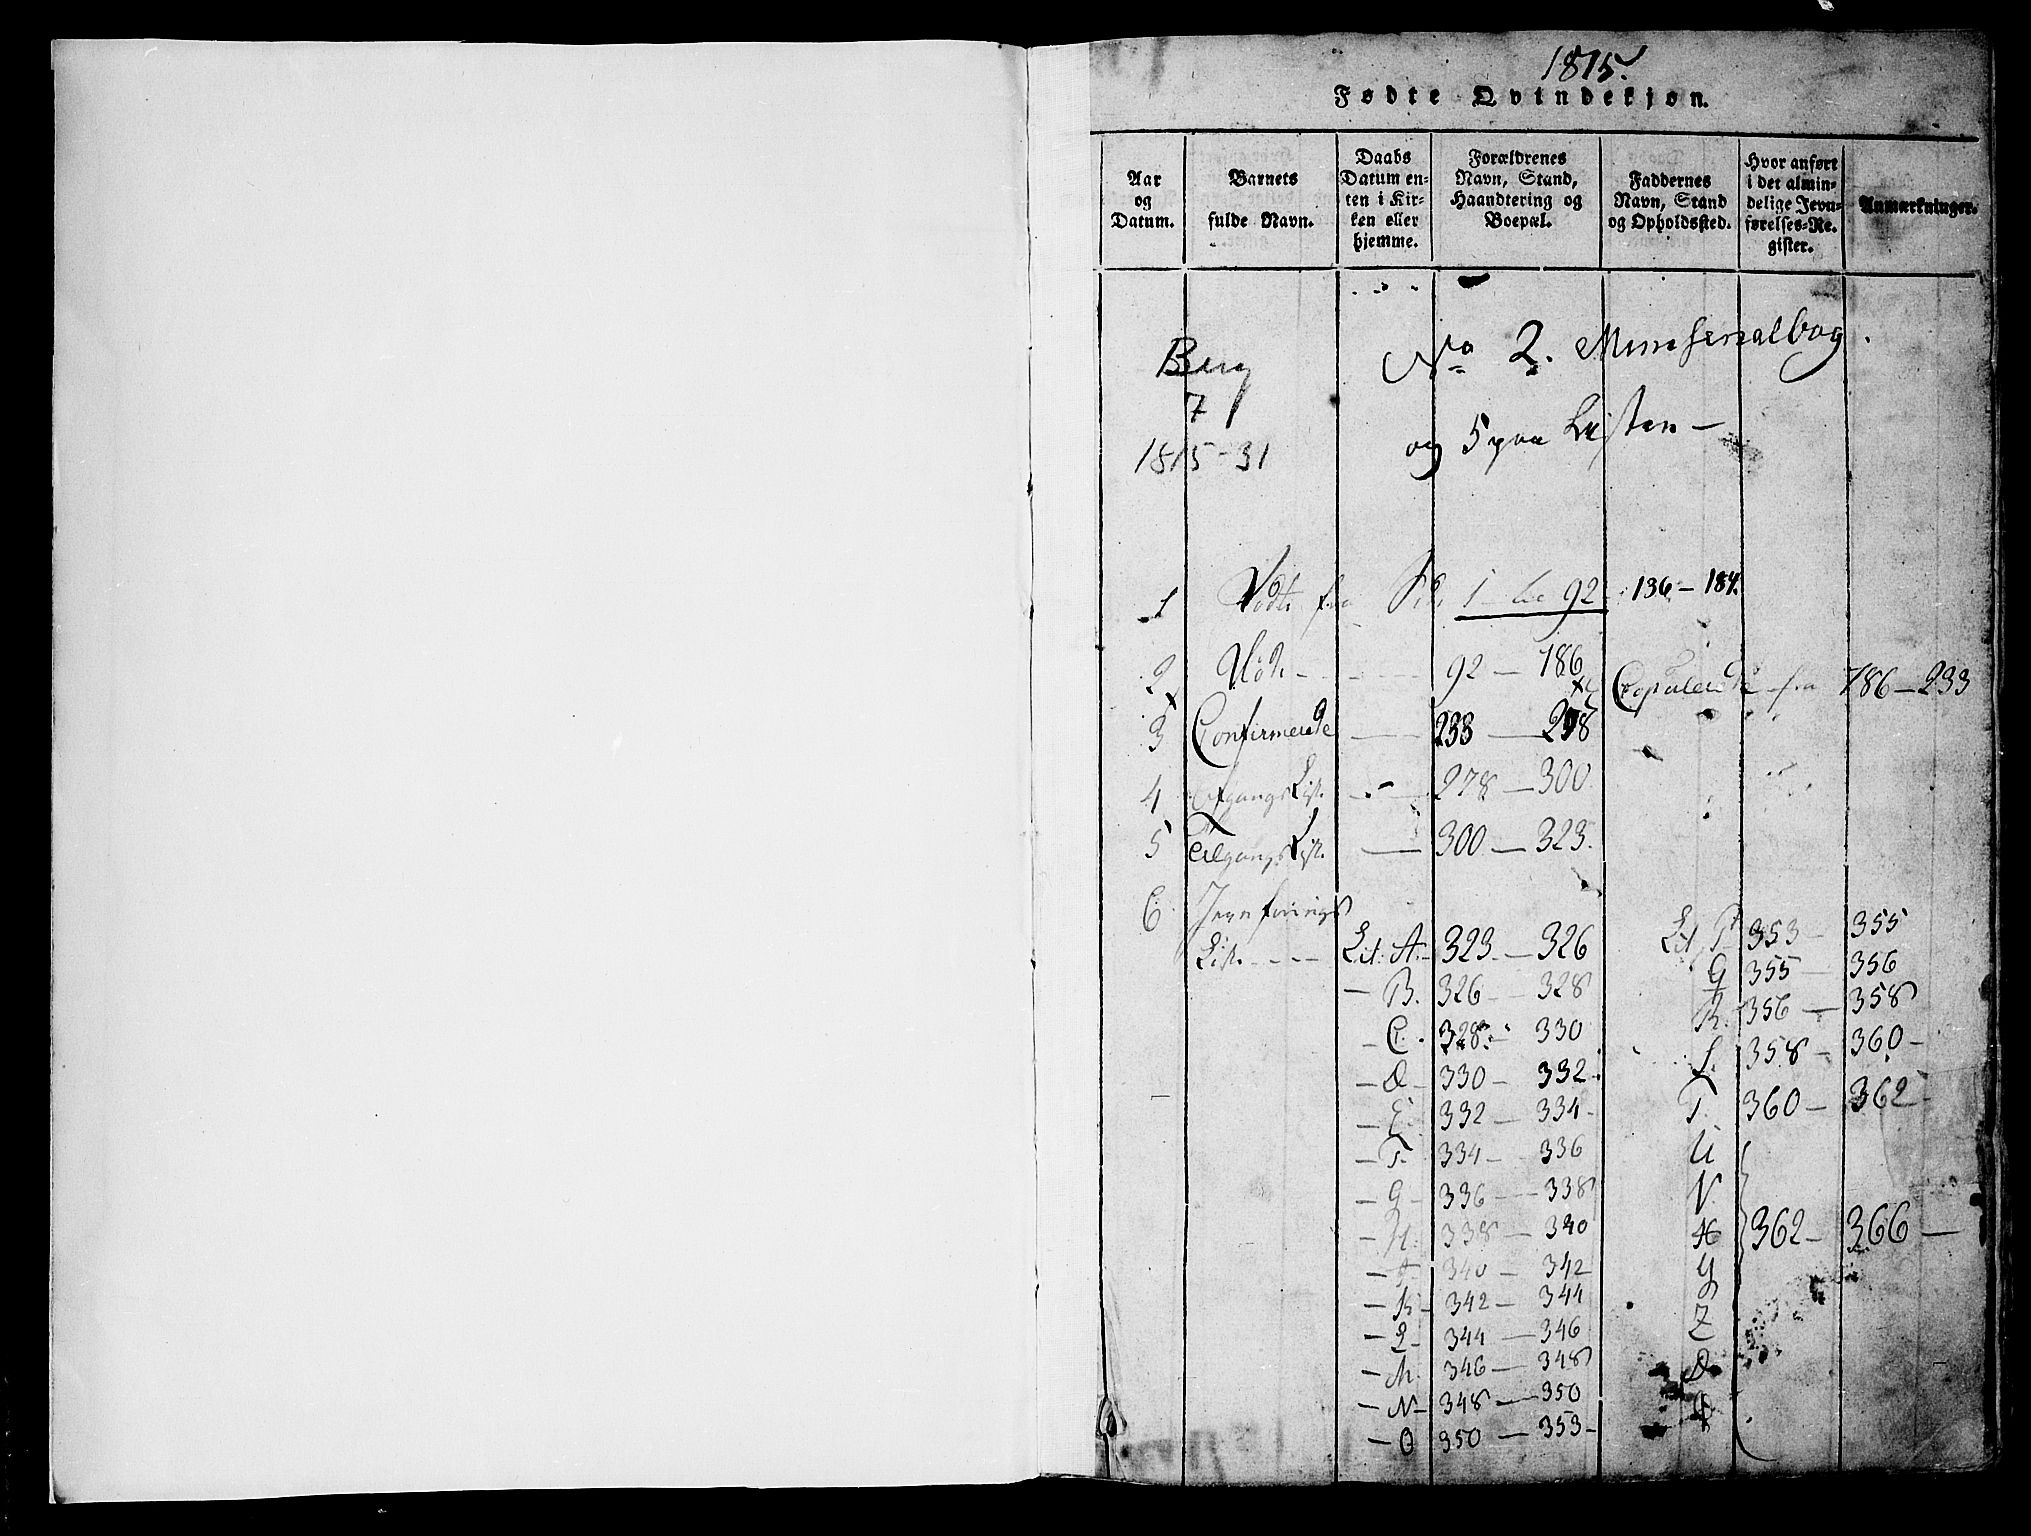 1815.
Fødte Qvindekjøn.
Aar og Datum.
Barnets fulde Navn.
Daabs Datum enten i Kirken eller hjemme.
Forældrenes Navn, Stand, Haandtering og Boepæl.
Faddernes Navn, Stand og Opholdssted.
Hvor anført i det almindelige Jevnførelses-Register.
Anmærkninger.
Berg No 2. Ministerialbog.
7
1815-31 og 5 paa Listen —
1 Fødte fra 1 92 136 — 184.
2 Døde - - - 92 — 186 Copulerede fra 186 — 233
3 Confirmerede — 233 — 278
4 AfgangsList. — 278 — 300
5 TilgangsList. — 300 — 323.
6 Jevnførings
List. - - - Lit. A. 323. — 326 Lit. P 353 — 355
— B. 326 — 328 Q 355 — 356
— C. 328 — 330 R. 356 — 358
— D — 330 — 332. S. 358 — 360 —
— E. 332 — 334 — T. 360 — 362 —
— F. 334 — 336 U
— G — 336 — 338 V
— H. 338 — 340 X 362 — 366 —
— I 340 — 342 Y
— K — 342 — 344 Z
— L — 344 — 346 Æ
— M. 346 — 348 Ø
— N — 348 — 350
— O 350 — 353 —